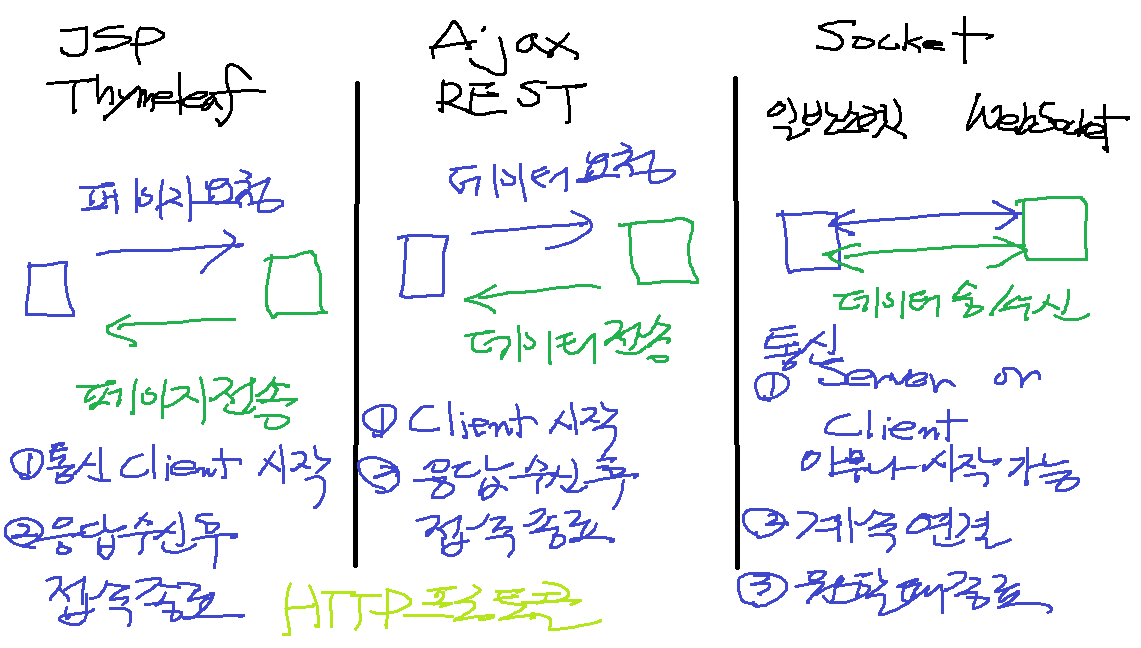 JSP
Thymeleaf
페이지요청
페이지전송
① 통신 Client 시작
② 응답수신후
접속종료
Ajax
REST
데이터요청
데이터전송
① Client 시작
② 응답수신후
접속종료
HTTP프로토콜
Socket
일반소켓 WebSocket
데이터송/수신
통신
① Server or
Client
아무나시작가능
② 계속연결
③ 원할때종료